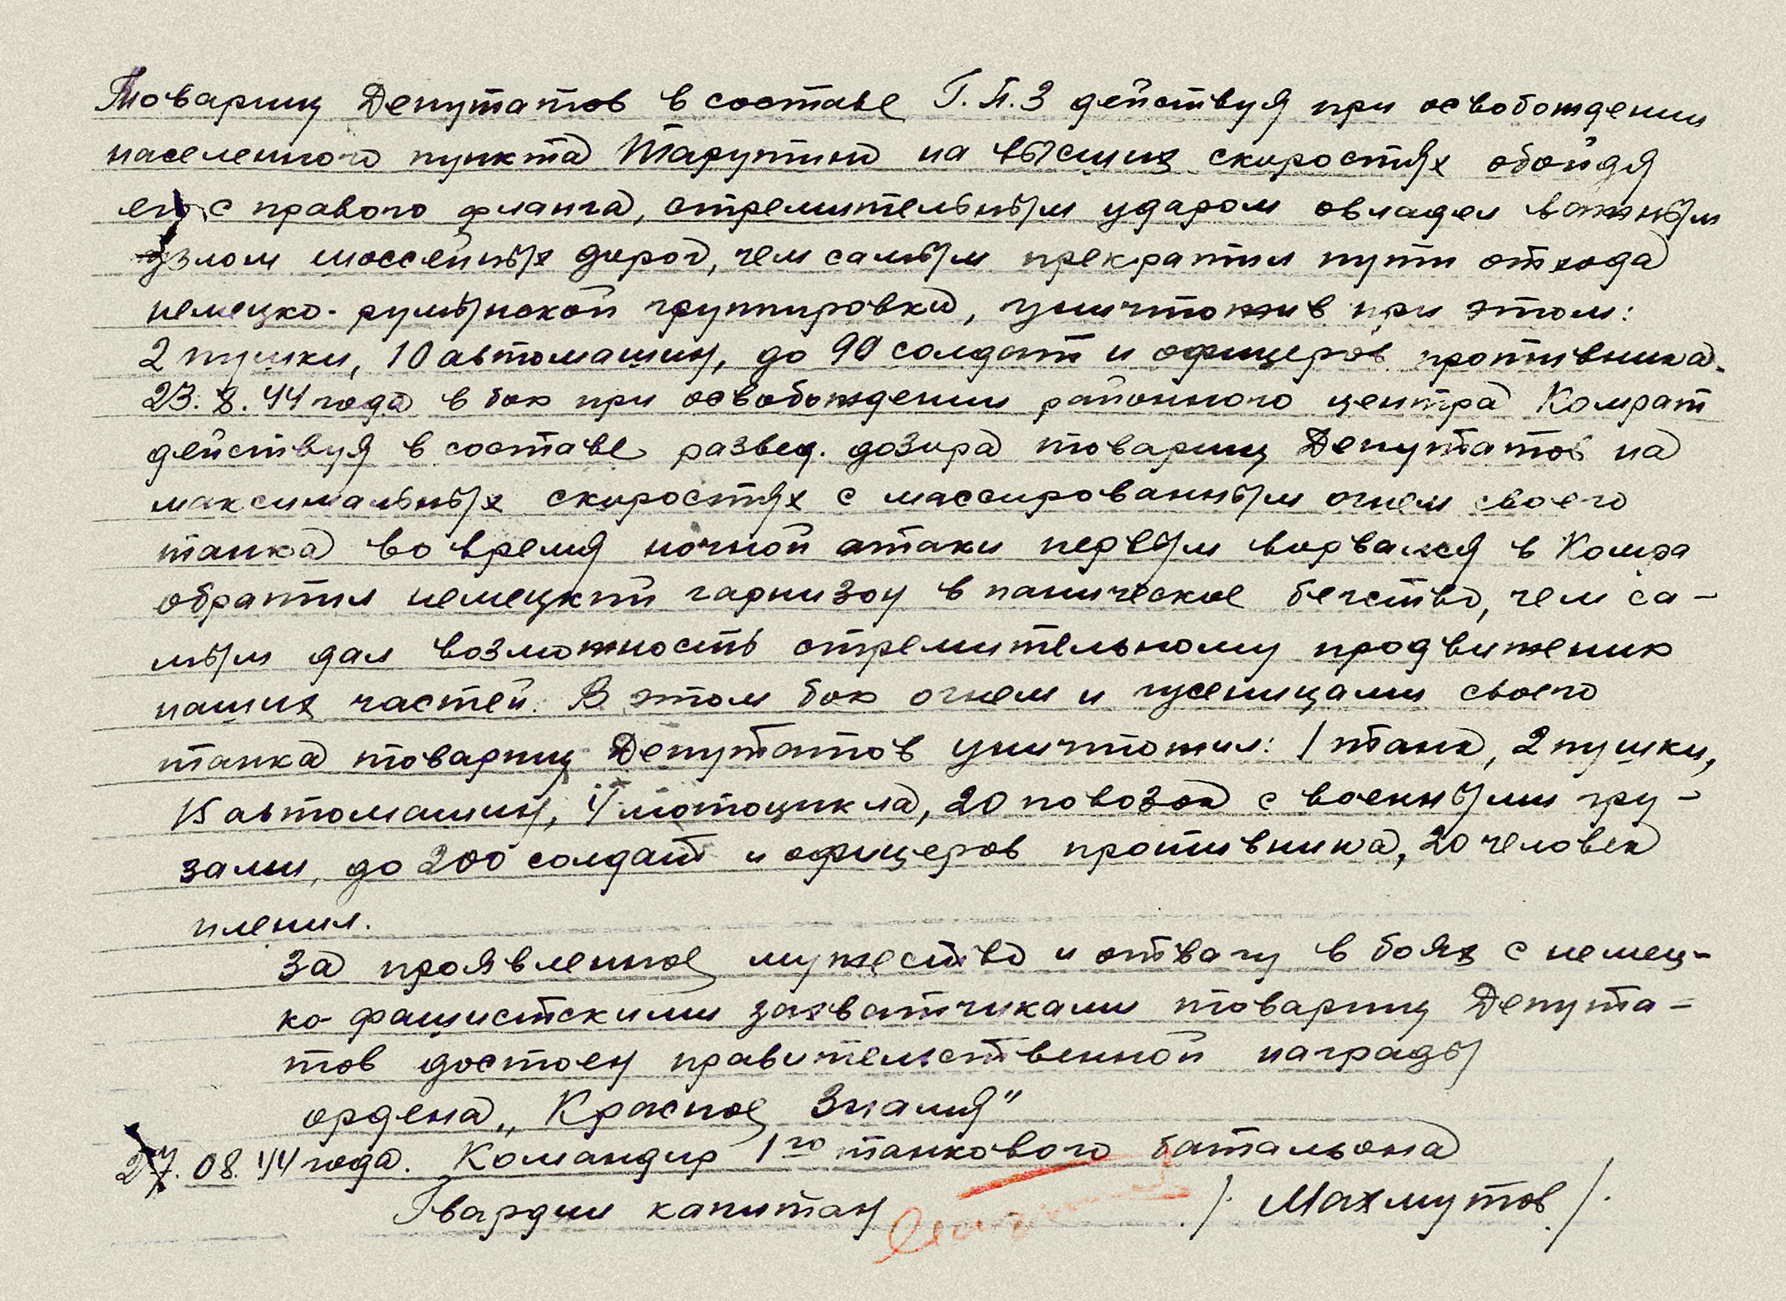 Товарищ Депутатов в составе Г.П.З действуя при освобождении
населенного пункта Тарутино на высших скоростях обойдя
его с правого фланга, стремительным ударом овладел важным
узлом шоссейных дорог, чем самым прекратил пути отхода
немецко-румынской группировки, уничтожив при этом:
2 пушки, 10 автомашин, до 90 солдат и офицеров противника.
23.8.44 года в бою при освобождении районного центра Комрат
действуя в составе развед. дозора товарищ Депутатов на
максимальных скоростях с массированным огнем своего
танка во время ночной атаки первым ворвался в Комра
обратил немецкий гарнизон в паническое бегство, чем са-
мым дал возможность стремительному продвижению
наших частей. В этом бою огнем и гусеницами своего
танка товарищ Депутатов уничтожил: 1 танк, 2 пушки,
15 автомашин, 4 мотоцикла, 20 повозок с военными гру-
зами, до 200 солдат и офицеров противника, 20 человек
пленил.
За проявленное мужество и отвагу в боях с немец-
ко фашистскими захватчиками товарищ Депута-
тов достоен правительственной награды
ордена „Красное Знамя"
27.08.44 года. Командир 1го танкового батальона
Гвардии капитан /. Махмутов /.